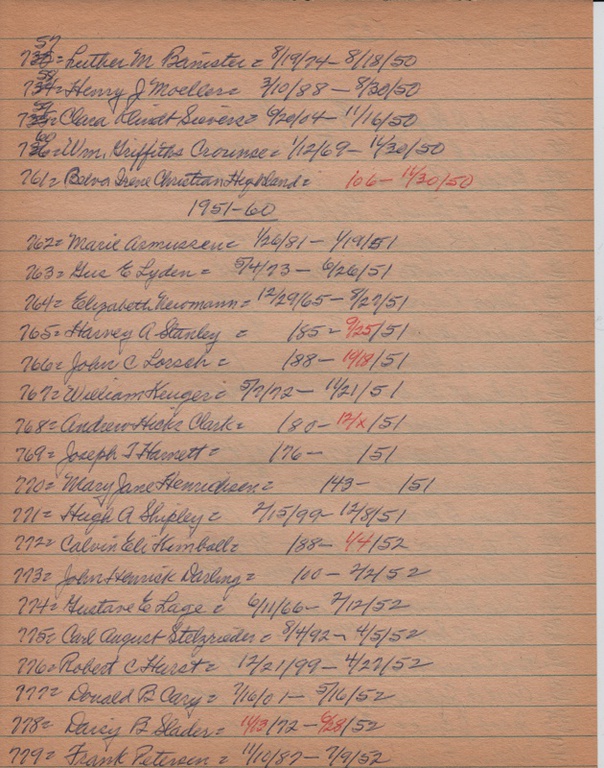 57
733= Luther M Banister = 8/19/74 - 8/18/50
58
734= Henry J Moeller = 3/10/88 - 8/30/50
59
735= Clara Lindt Sievers = 9/20/04 - 11/16/50
60
736= Wm. Griffiths Crounse = 1/12/69 - 11/30/50
761= Irene Christian Highland = /06 - 11/30/50
1951-60
762= Marie Asmussen = 1/26/81 - 1/19/51
763= Gus E Lyden = 5/4/73 - 6/26/51
764= Elizabeth Newmann = 12/29/65 - 8/27/51
765= Harvey A Stanley = /85 - 9/25/51
766= John C Lorsch = /88 - 10/18/51
767= William Keuger = 5/7/72 - 11/21/51
768= Andrew Hicks Clark = /80 - 12/x/51
769= Joseph T Harnett = /76 - /51
770= Mary Jane Henrichsen = /43 - /51
771= Hugh A Shipley = 2/15/99 - 12/8/51
772= Calvin Eli Kimball = /88 - 1/4/52
773= John Henrick Darling = /00 - 2/2/52
774= Gustave E Lage = 6/11/66 - 2/12/52
775= Carl August Stelzrieder = 8/4/92 - 4/5/52
776= Robert C Hurst = 12/21/99 - 4/27/52
777= Donald B Cary = 7/16/01 - 5/16/52
778= Daisy B Slader = 11/13/72 - 6/28/52
779= Frank Petersen = 11/10/87 - 7/9/52